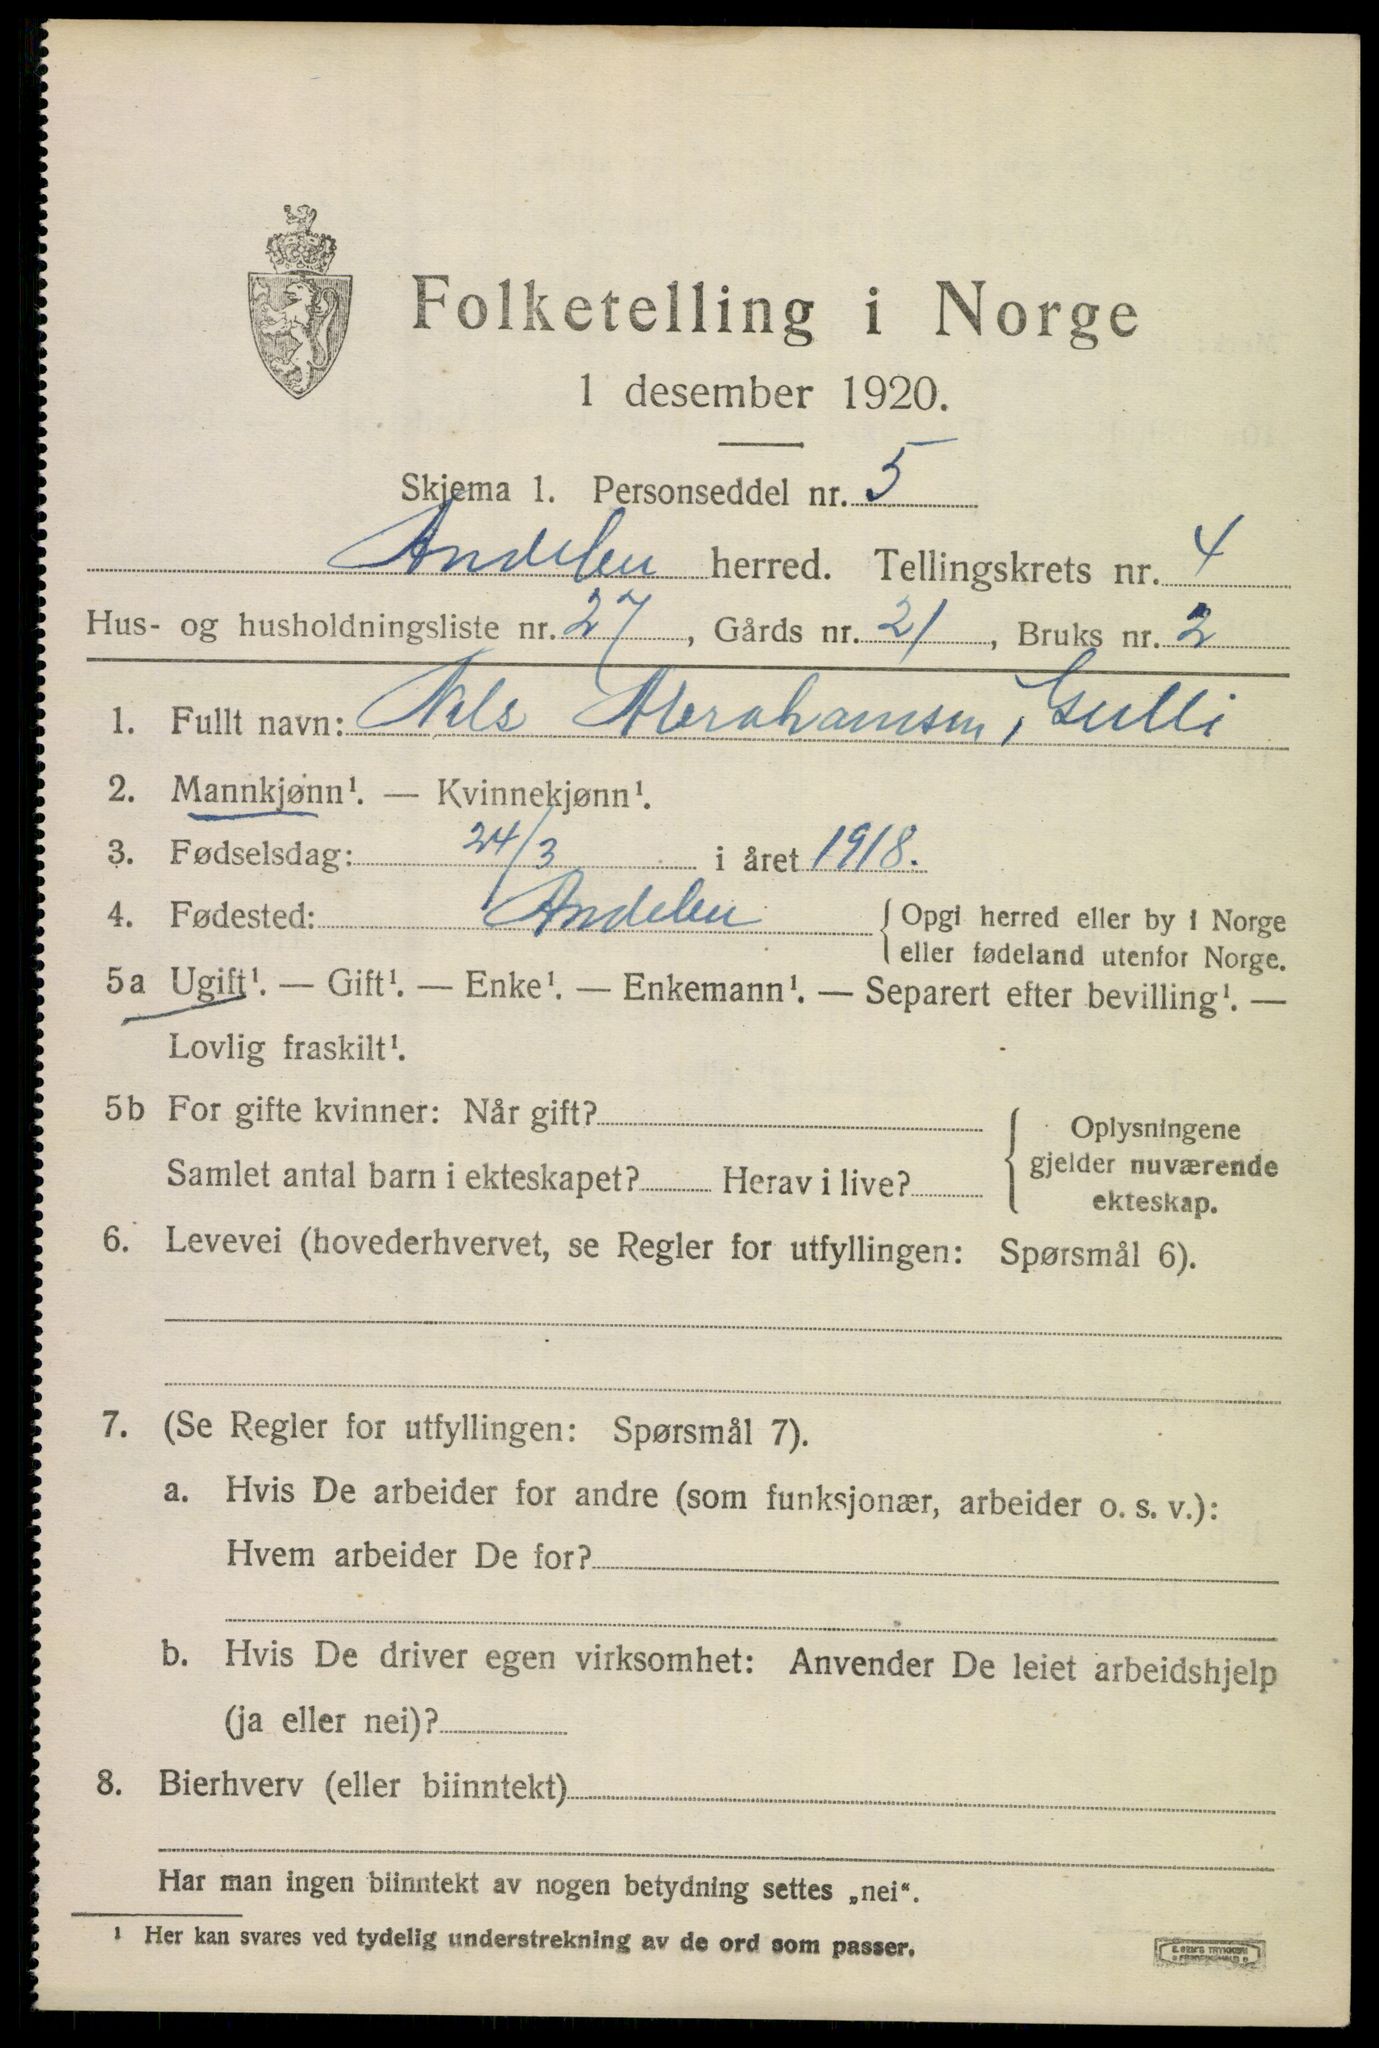 Folketelling i Norge
1 desember 1920.
Skjema 1. Personseddel nr. 5
Andebu herred. Tellingskrets nr. 4
Hus- og husholdningsliste nr. 27, Gårds nr. 21, Bruks nr. 2
1. Fullt navn: Nils Abrahamsen, Gulli
2. Mannkjønn¹. — Kvinnekjønn¹.
3. Fødselsdag: 24/3 i året 1918.
4. Fødested: Andebu { Opgi herred eller by i Norge
eller fødeland utenfor Norge.
5a Ugift¹. — Gift¹. — Enke¹. — Enkemann¹. — Separert efter bevilling¹. —
Lovlig fraskilt¹.
5b For gifte kvinner: Når gift?
Samlet antal barn i ekteskapet? Herav i live?
{ Oplysningene
gjelder nuværende
ekteskap.
6. Levevei (hovederhvervet, se Regler for utfyllingen: Spørsmål 6).
7. (Se Regler for utfyllingen: Spørsmål 7).
a. Hvis De arbeider for andre (som funksjonær, arbeider o. s. v.):
Hvem arbeider De for?
b. Hvis De driver egen virksomhet: Anvender De leiet arbeidshjelp
(ja eller nei)?
8. Bierhverv (eller biinntekt)
Har man ingen biinntekt av nogen betydning settes „nei“.
¹ Her kan svares ved tydelig understrekning av de ord som passer.